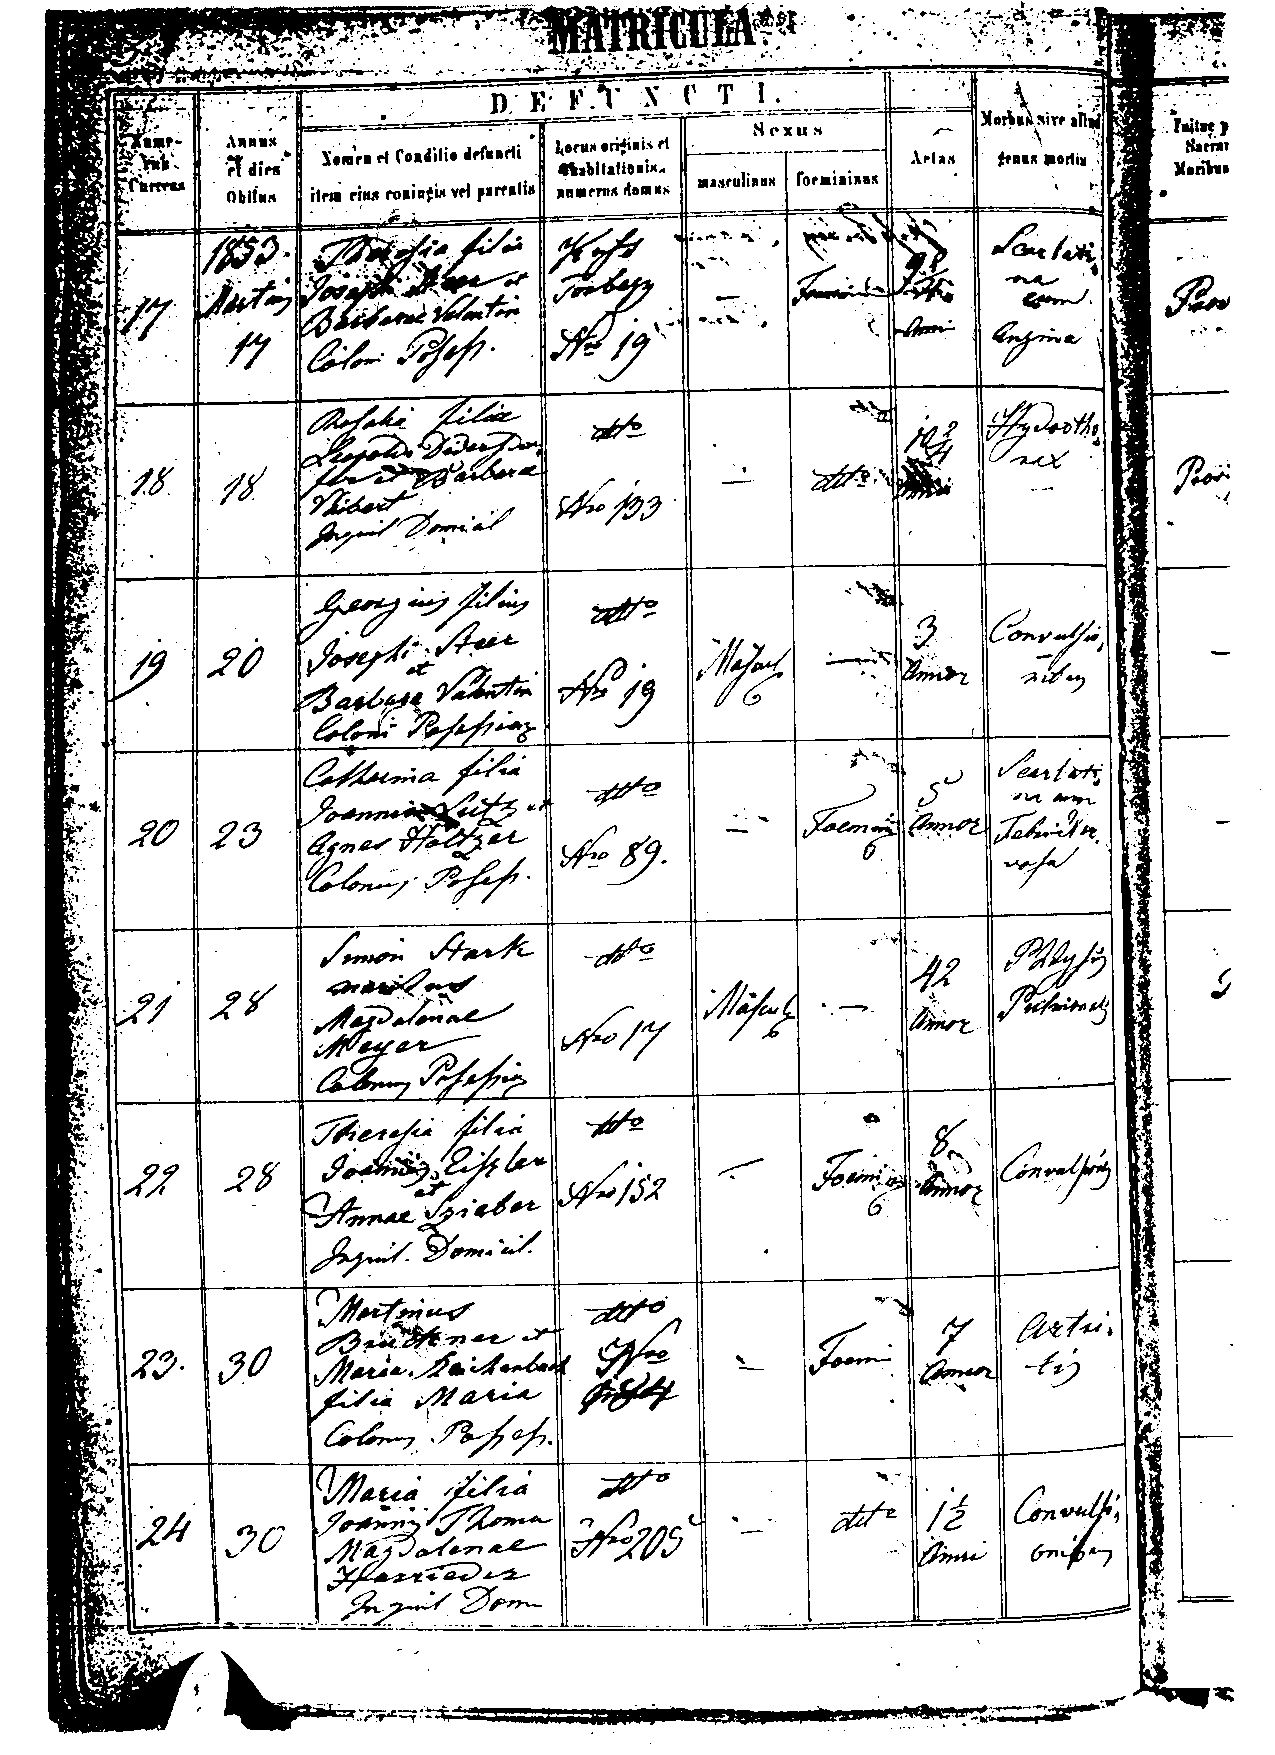 MATRICULA
DEFUNCTI.
Numerus Currens
Annus et dies Obitus
Nomen et Conditio defuncti
item eius coniugis vel parentis
Locus originis et
habitationis,
numerus domus
Sexus
masculinus
foemininus
Aetas
Morbus sive aliud
genus mortis
17
1853.
Martius
17
Theresia filia
Josephi et
Barbarae Valentin
Coloni Possess.
Nro 19
Scarlati,
na
cum
Angina
18
18
Rosalia filia
Leopoldi
et Barbara
Inquil Domicil
dtto
Nro 133
—
dtto
Hydrotho,
rax
19
20
Georgius filius
Josephi Steer
et
Barbara Valentin
Coloni Possessior
dtto
Nro 19
Mascul
—
3
Annor
Convulsio,
nibus
20
23
Catharina filia
Joannis et
Agnes Holtzer
Colonus Possess.
dtto
Nro 89.
—
Foemin
5
Annor
Scarlati,
na cum
21
28
Simon Stark
maritus
Magdalenae
Meyer
Colonus Possessior
dtto
Nro 17
Mascul
—
42
Annor
Phtysis
Pulmonalis
22
28
Theresia filia
Joannis Eissler
et
Annae
Inquil. Domicil.
dtto
Nro 152
—
Foemin
8
Annor
Convulsionis
23.
30
Martinus
Bruckner et
Maria Reichenbach
filia Maria
Colonus Possess.
dtto
Nro
—
Foemi
7
Annor
Artri,
tis
24
30
Maria filia
Joannis Thoma
Magdalenae
Inquil Domi
dtto
Nro 205
—
dtto
1 1/2
Anni
Convulsi,
onibus